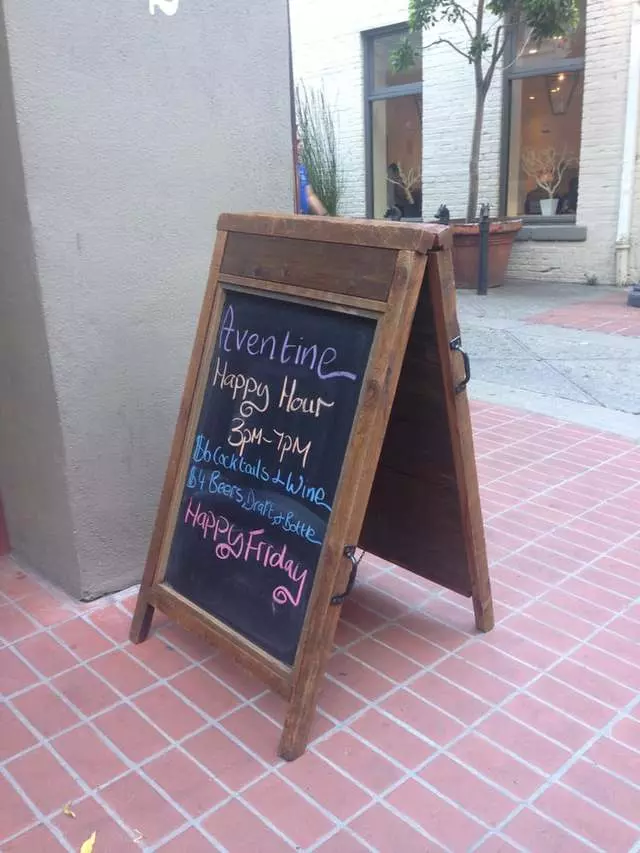 Aventine
Happy Hour
3PM-7PM
$6 Cocktails & Wine
$4 Beers, Draft & Bottle
Happy Friday